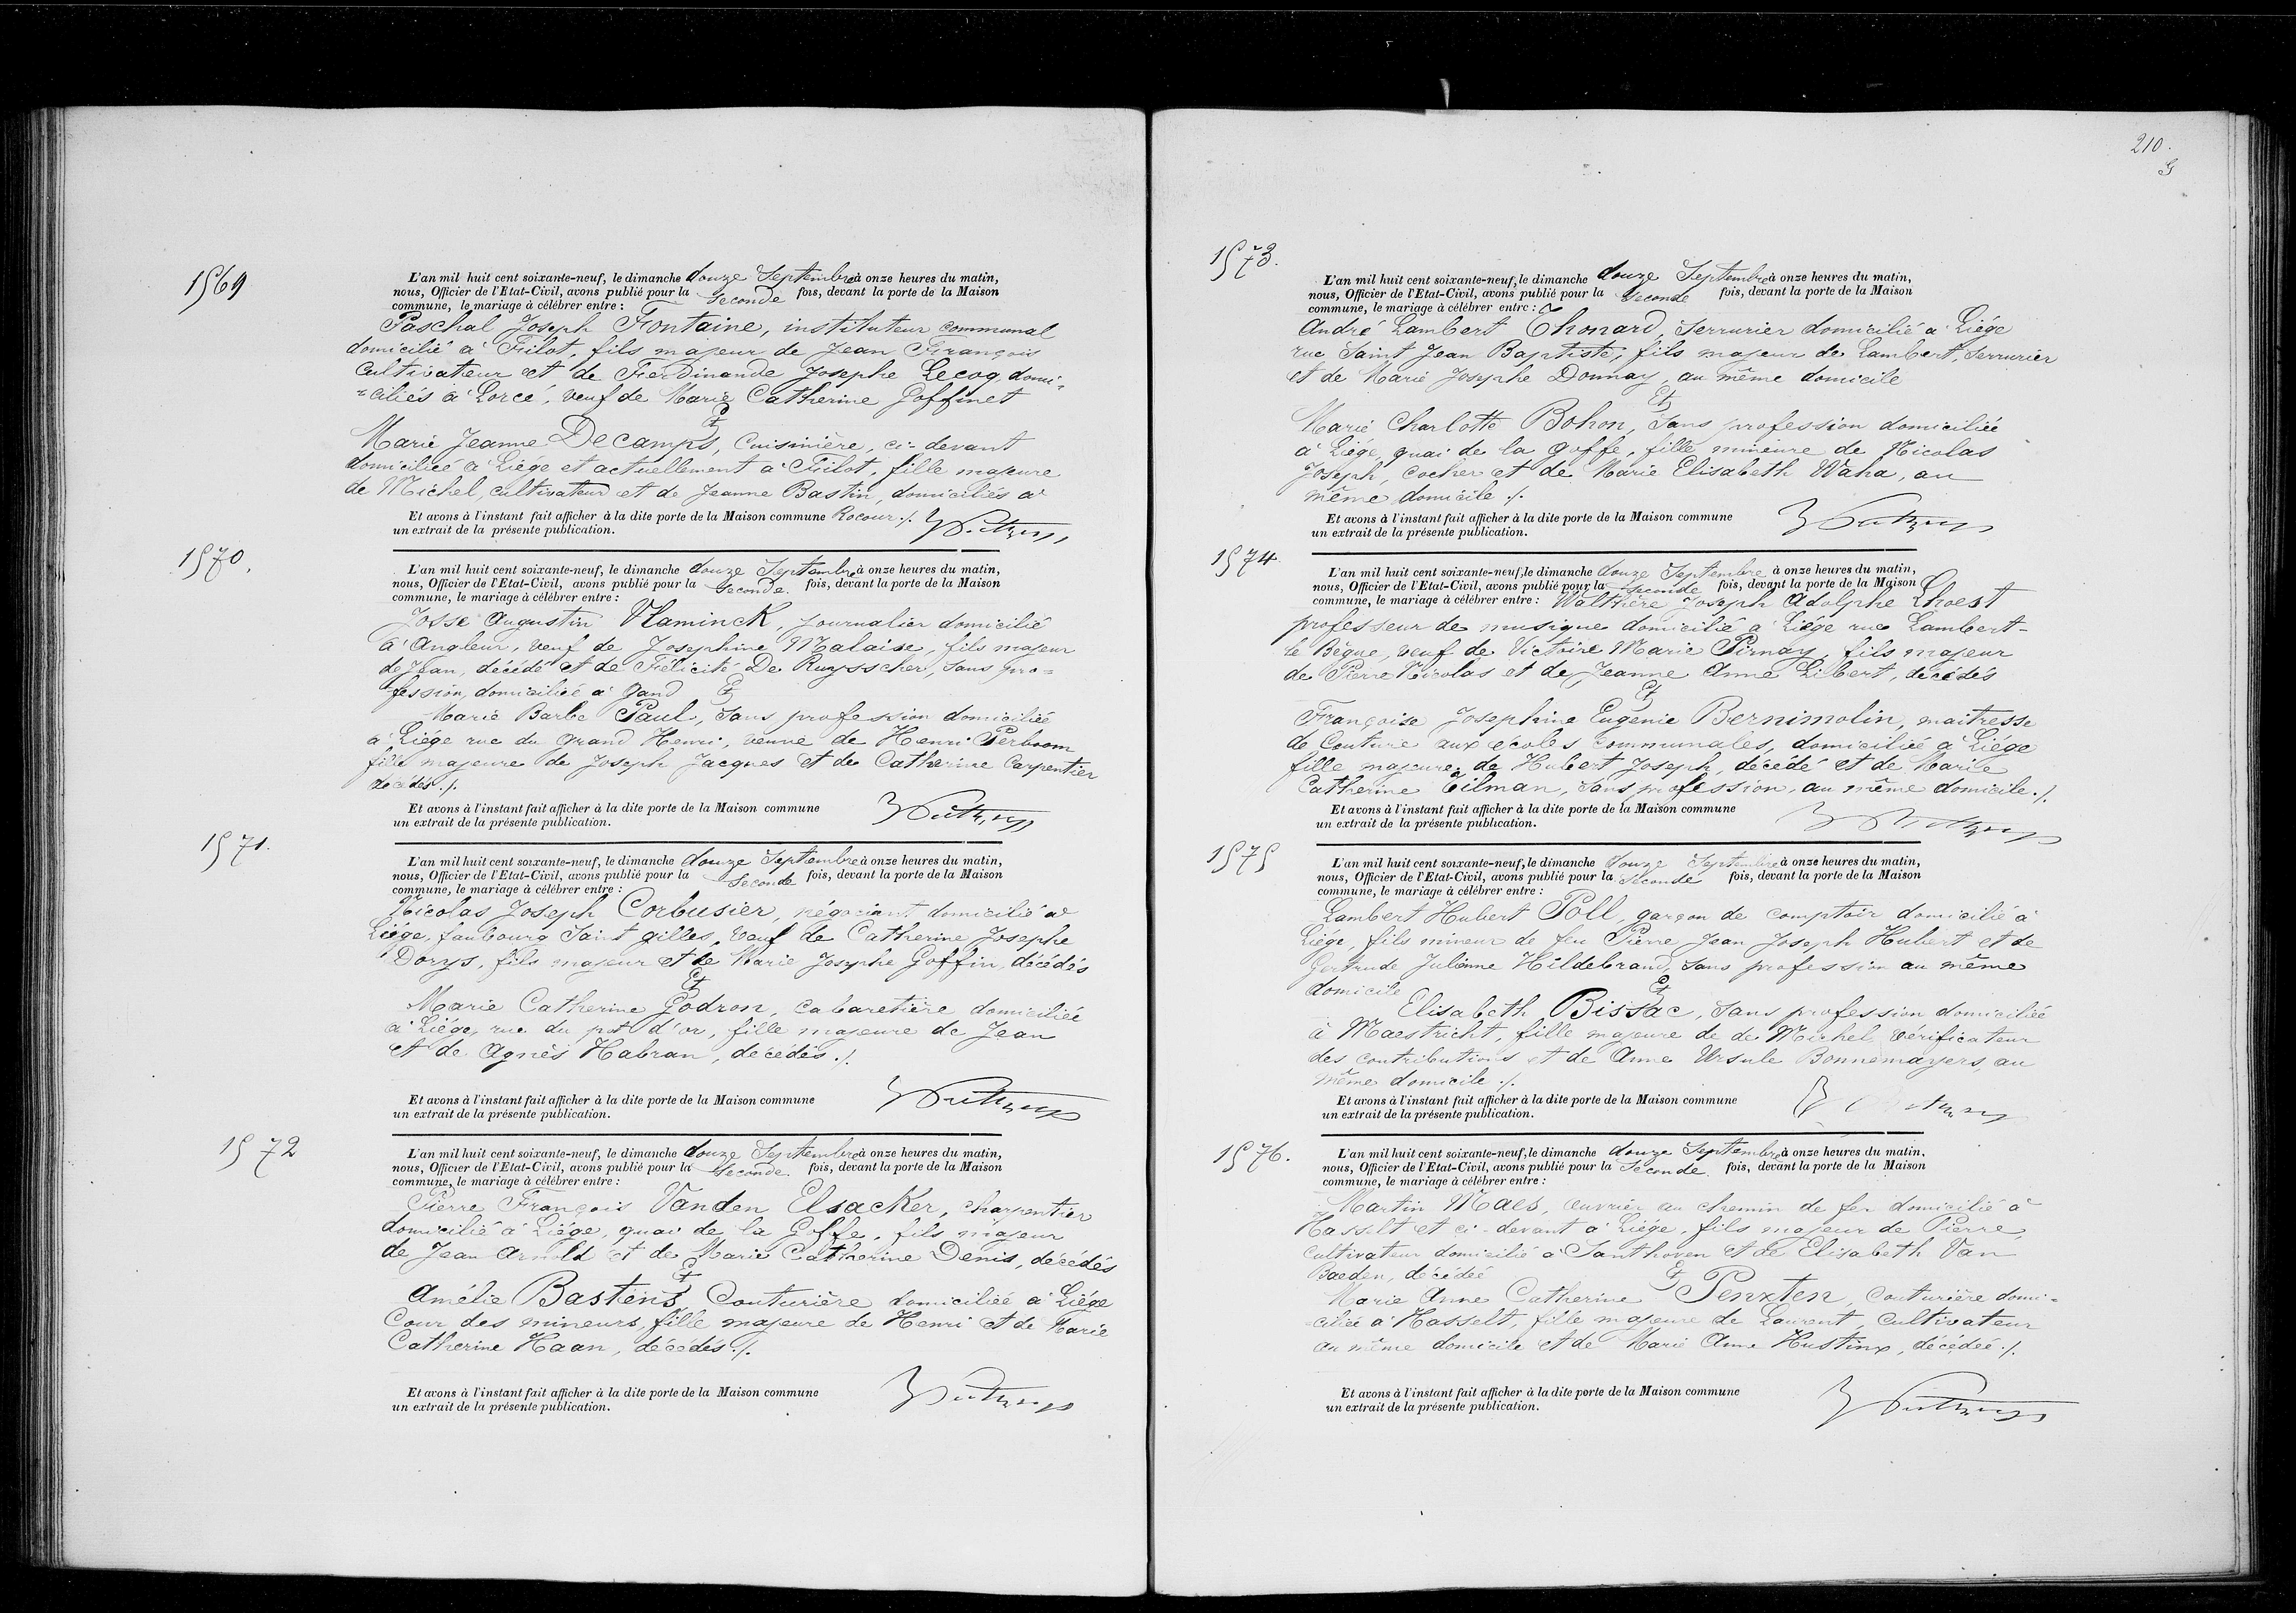 1569
L'an mil huit cent soixante-neuf, le dimanche douze Septembre à onze heures du matin,
nous, Officier de l'Etat-Civil, avons publié pour la seconde fois, devant la porte de la Maison
commune, le mariage à célébrer entre :
Paschal Joseph Fontaine, instituteur communal
domicilié à Filot, fils majeur de Jean François
cultivateur et de Ferdinande Josephe Lecoq, domi-
-ciliés à Lorcé, veuf de Marie Catherine Goffinet
Et
Marie Jeanne Decamps, Cuisinière, ci-devant
domiciliée à Liége et actuellement à Filot, fille majeure
de Michel, cultivateur et de Jeanne Bastin, domiciliés à
Et avons à l'instant fait afficher à la dite porte de la Maison commune Rocour ./.
un extrait de la présente publication.
1570.
L'an mil huit cent soixante-neuf, le dimanche douze Septembre à onze heures du matin,
nous, Officier de l'Etat-Civil, avons publié pour la seconde fois, devant la porte de la Maison
commune, le mariage à célébrer entre :
Josse Augustin Vlaminck, journalier domicilié
à Angleur, veuf de Josephine Malaise, fils majeur
de Jean, décédé et de Félicité De Ruysscher, sans pro-
fession, domiciliée à Gand Et
Marie Barbe Paul, sans profession domiciliée
à Liége rue du Grand Henri, veuve de Henri Perboom
fille majeure de Joseph Jacques et de Catherine Carpentier
décédés ./.
Et avons à l'instant fait afficher à la dite porte de la Maison commune
un extrait de la présente publication.
1571.
L'an mil huit cent soixante-neuf, le dimanche douze Septembre à onze heures du matin,
nous, Officier de l'Etat-Civil, avons publié pour la seconde fois, devant la porte de la Maison
commune, le mariage à célébrer entre :
Nicolas Joseph Corbusier, négociant domicilié à
Liége, faubourg Saint Gilles, veuf de Catherine Josephe
Dorys, fils majeur et de Marie Josephe Goffin, décédés
Et
Marie Catherine Godron, cabaretière domiciliée
à Liége, rue du pot d'or, fille majeure de Jean
et de Agnès Habran, décédés ./.
Et avons à l'instant fait afficher à la dite porte de la Maison commune
un extrait de la présente publication.
1572
L'an mil huit cent soixante-neuf, le dimanche douze Septembre à onze heures du matin,
nous, Officier de l'Etat-Civil, avons publié pour la seconde fois, devant la porte de la Maison
commune, le mariage à célébrer entre :
Pierre François Vanden Elsacker, charpentier
domicilié à Liége, quai de la Goffe, fils majeur
de Jean Arnold et de Marie Catherine Denis, décédés
Et
Amélie Bastens Couturière domiciliée à Liége
Cour des mineurs, fille majeure de Henri et de Marie
Catherine Haan, décédés ./.
Et avons à l'instant fait afficher à la dite porte de la Maison commune
un extrait de la présente publication.
210.
1573.
L'an mil huit cent soixante-neuf, le dimanche douze Septembre à onze heures du matin,
nous, Officier de l'Etat-Civil, avons publié pour la seconde fois, devant la porte de la Maison
commune, le mariage à célébrer entre :
André Lambert Thonard, Serrurier domicilié à Liége
rue Saint Jean Baptiste, fils majeur de Lambert, Serrurier
et de Marie Josephe Donnay, au même domicile
Et
Marie Charlotte Bohon, sans profession domiciliée
à Liége, quai de la Goffe, fille mineure de Nicolas
Joseph, cocher et de Marie Elisabeth Waha, au
même domicile ./.
Et avons à l'instant fait afficher à la dite porte de la Maison commune
un extrait de la présente publication.
1574
L'an mil huit cent soixante-neuf, le dimanche douze Septembre à onze heures du matin,
nous, Officier de l'Etat-Civil, avons publié pour la seconde fois, devant la porte de la Maison
commune, le mariage à célébrer entre : Walthère Joseph Adolphe Lhoest
professeur de musique domicilié à Liége rue Lambert-
le Bègue, veuf de Victoire Marie Pirnay, fils majeur
de Pierre Nicolas et de Jeanne Anne Libert, décédés
Et
Françoise Josephine Eugenie Bernimolin, maitresse
de Couture aux écoles communales, domiciliée à Liége
fille majeure de Hubert Joseph, décédé et de Marie
Catherine Tilman, sans profession, au même domicile ./.
Et avons à l'instant fait afficher à la dite porte de la Maison commune
un extrait de la présente publication.
1575
L'an mil huit cent soixante-neuf, le dimanche douze Septembre à onze heures du matin,
nous, Officier de l'Etat-Civil, avons publié pour la seconde fois, devant la porte de la Maison
commune, le mariage à célébrer entre :
Lambert Hubert Poll, garçon de comptoir domicilié à
Liége, fils mineur de feu Pierre Jean Joseph Hubert et de
Gertrude Julienne Hildebrand, sans profession au même
domicile Et
Elisabeth Bissac, sans profession domiciliée
à Maestricht, fille majeure de de Michel vérificateur
des contributions et de Anne Ursule Bonnemayers, au
même domicile ./.
Et avons à l'instant fait afficher à la dite porte de la Maison commune
un extrait de la présente publication.
1576.
L'an mil huit cent soixante-neuf, le dimanche douze Septembre à onze heures du matin,
nous, Officier de l'Etat-Civil, avons publié pour la seconde fois, devant la porte de la Maison
commune, le mariage à célébrer entre :
Martin Maes, ouvrier au chemin de fer domicilié à
Hasselt et ci-devant à Liége, fils majeur de Pierre,
Cultivateur domicilié à Santhoven et de Elisabeth Van
Baeden, décédée Et
Marie Anne Catherine Penxten, Couturière domi-
-ciliée à Hasselt, fille majeure de Laurent, Cultivateur
au même domicile et de Marie Anne Hustinx, décédée ./.
Et avons à l'instant fait afficher à la dite porte de la Maison commune
un extrait de la présente publication.